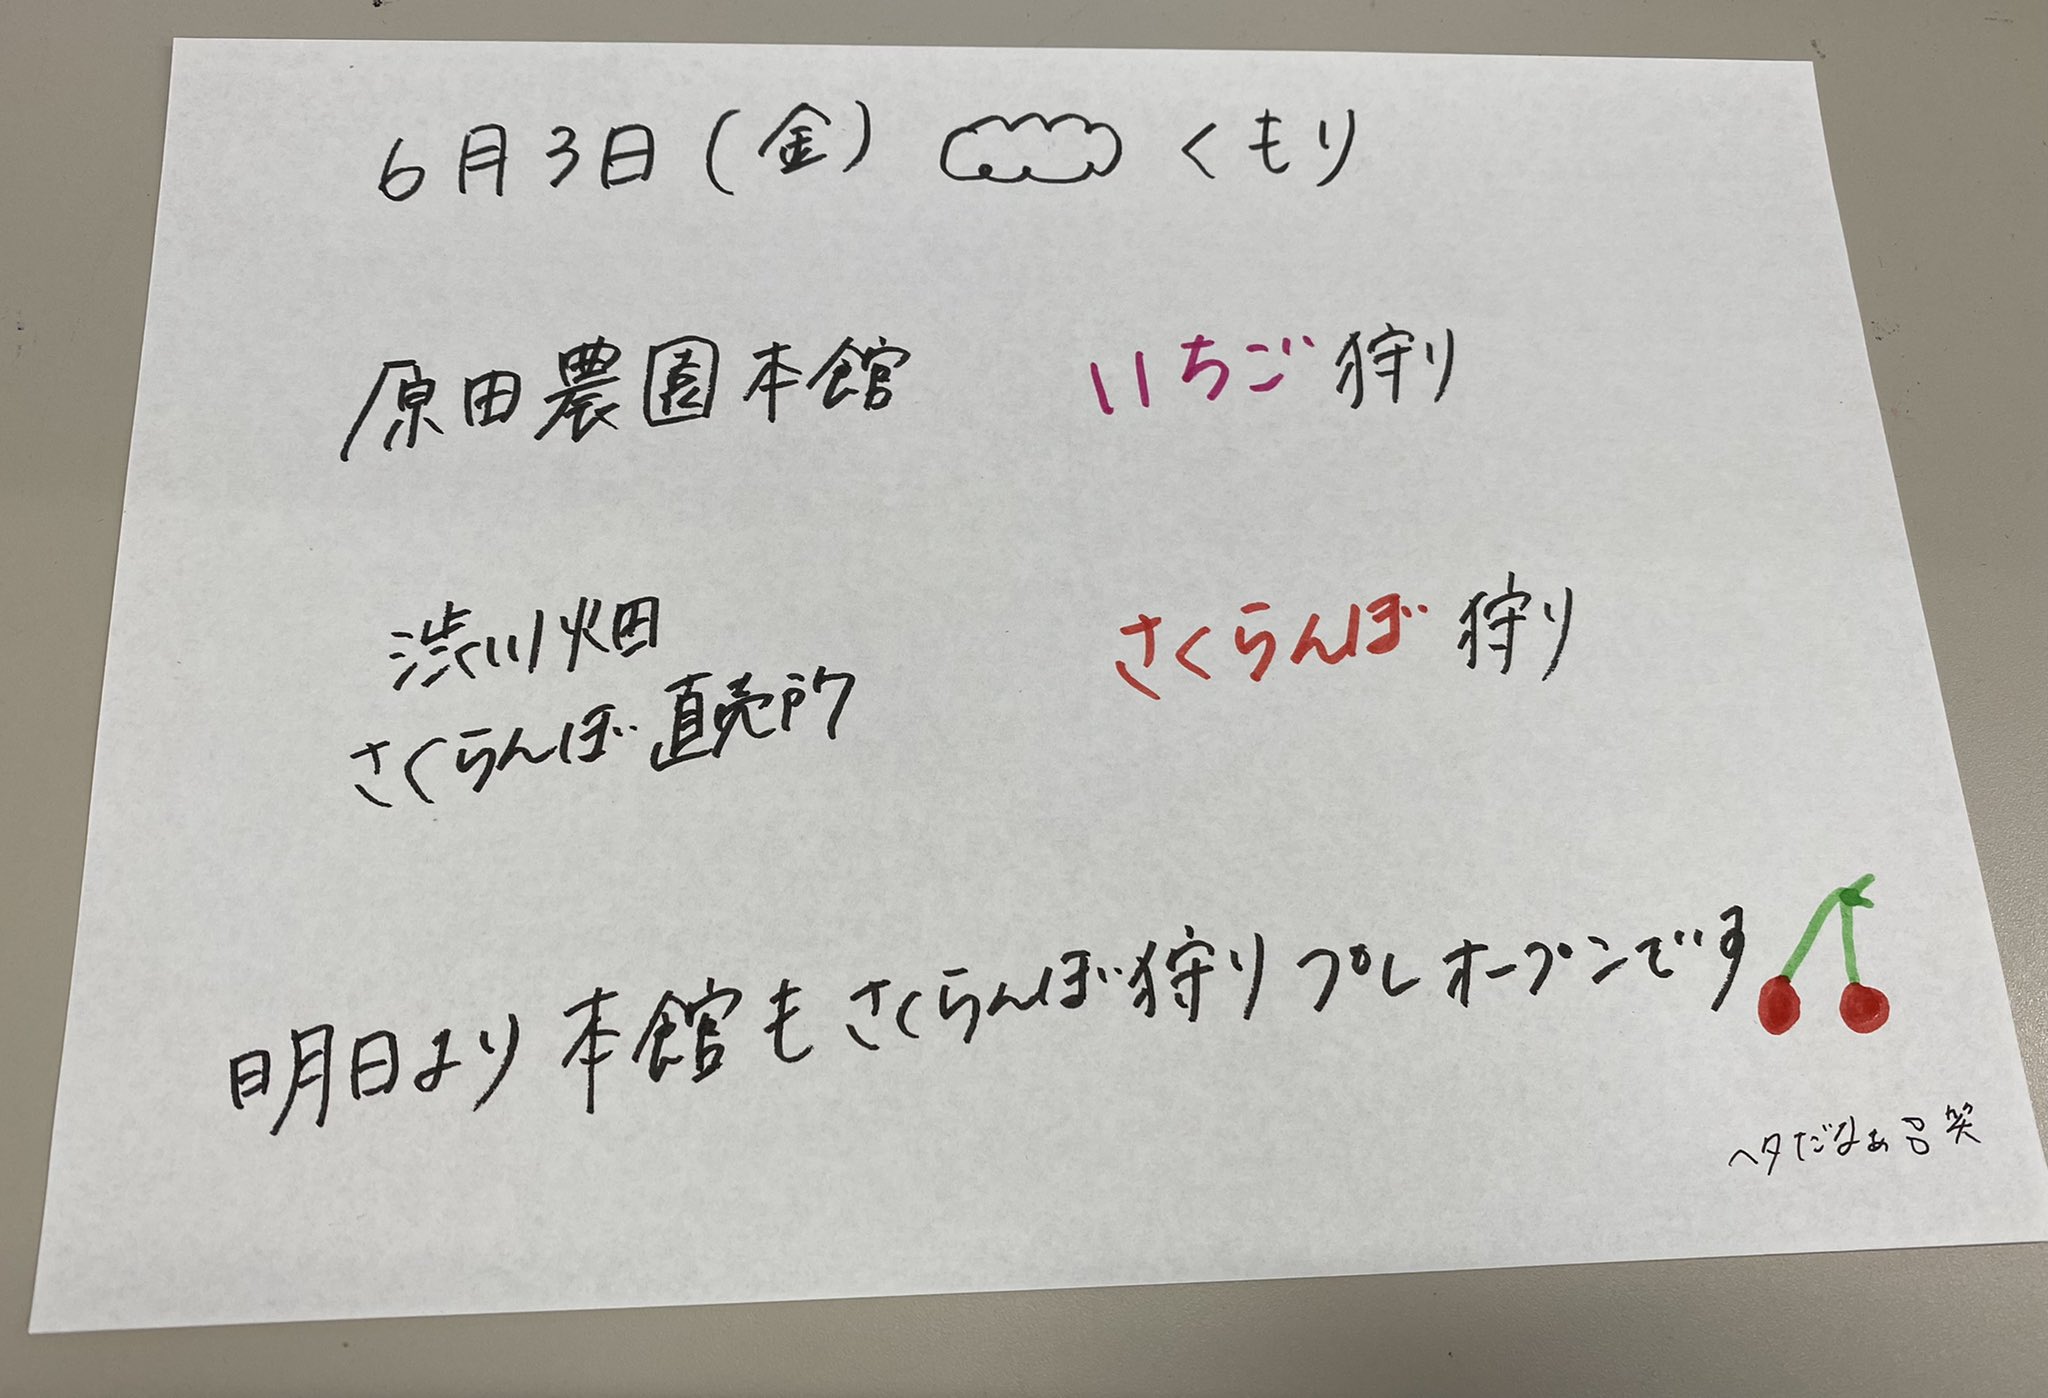 6月3日(金) くもり
原田農園本館 いちご狩り
渋川畑 さくらんぼ狩り
さくらんぼ直売所
明日より本館もさくらんぼ狩りプレオープンです
ヘタだなぁ 笑